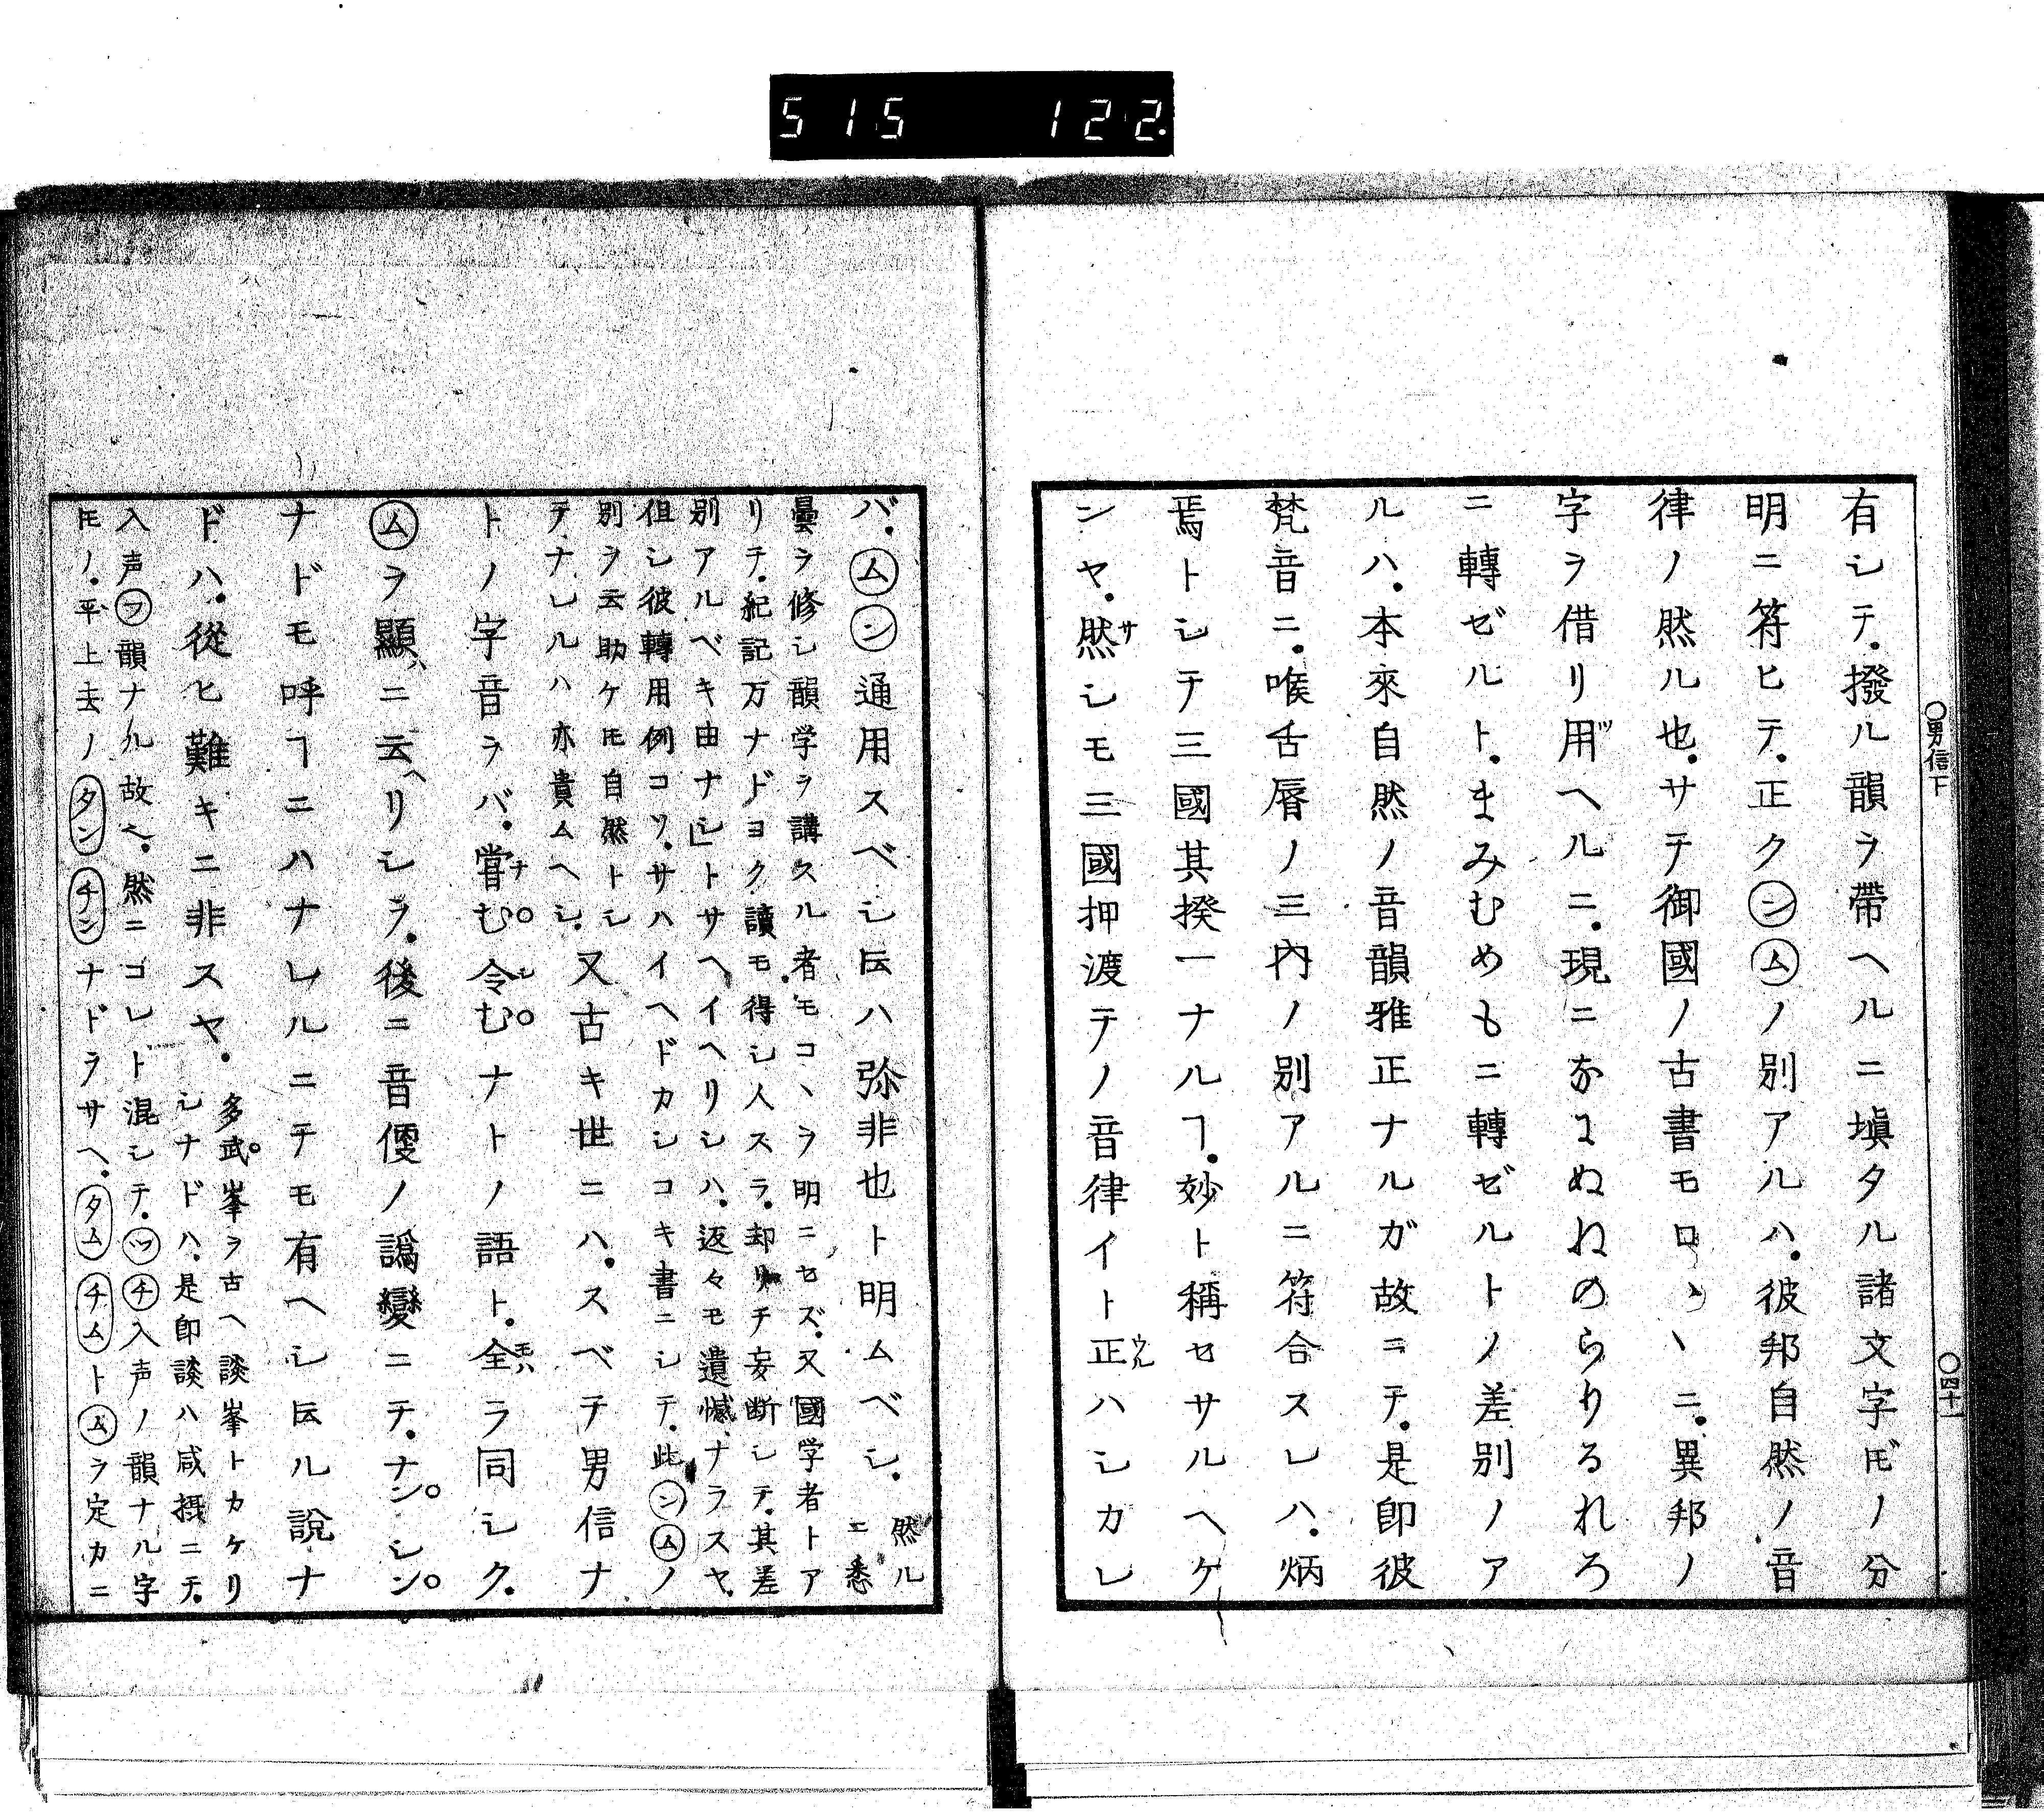 515 122
〇男信下
〇四十一
有シテ．撥ル韻ヲ帶ヘルニ塡タル諸文字𪜈ノ分
明ニ符ヒテ．正ク㋛ンムノ別アルハ．彼邦自然ノ音
律ノ然ル也．サテ御國ノ古書モロヽヽニ．異邦ノ
字ヲ借リ用ヘルニ．現ニなにぬねのらりるれろ
ニ轉ゼルト．まみむめもニ轉ゼルトノ差別ノア
ルハ．本來自然ノ音韻雅正ナルガ故ニテ．是卽彼
梵音ニ．喉舌脣ノ三內ノ別アルニ符合スレハ．炳
焉トシテ三國其揆一ナルヿ．妙ト稱セサルヘケ
ンヤ．然シモ三國押渡テノ音律イト正ハシカレ
バ．ムン通用スベシ𪜈ハ弥非也ト明ムベシ．然ル
ニ悉
曇ヲ修シ韻学ヲ講スル者モコヽヲ明ニセズ．又國学者トア
リテ．紀記万ナドヨク讀モ得シ人スラ．却リテ妄断シテ．其差
別アルベキ由ナシ」トサヘイヘリシハ．返々モ遺憾ナラスヤ．
但シ彼轉用例コソ．サハイヘドカシコキ書ニシテ．此ンムノ
別ヲ云助ケ𪜈自然トシ
テナレルハ亦貴ムヘシ．又古キ世ニハ．スベテ男信ナ
トノ字音ヲバ．嘗む令むナトノ語ト．全ラ同シク．
ムヲ顯ニ云ヘリシヲ．後ニ音便ノ譌變ニテ．ナンシン
ナドモ呼ヿニハナレルニテモ有ヘシ𪜈ル說ナ
ドハ．從ヒ難キニ非スヤ．多武峯ヲ古ヘ談峯トカケリ
シナドハ．是卽談ハ咸攝ニテ．
入声フ韻ナル故ヘ．然ニコレト混シテ．ツチ入声ノ韻ナル字
𪜈ノ．平上去ノタンチンナドヲサヘ．タムチムトムヲ定カニ